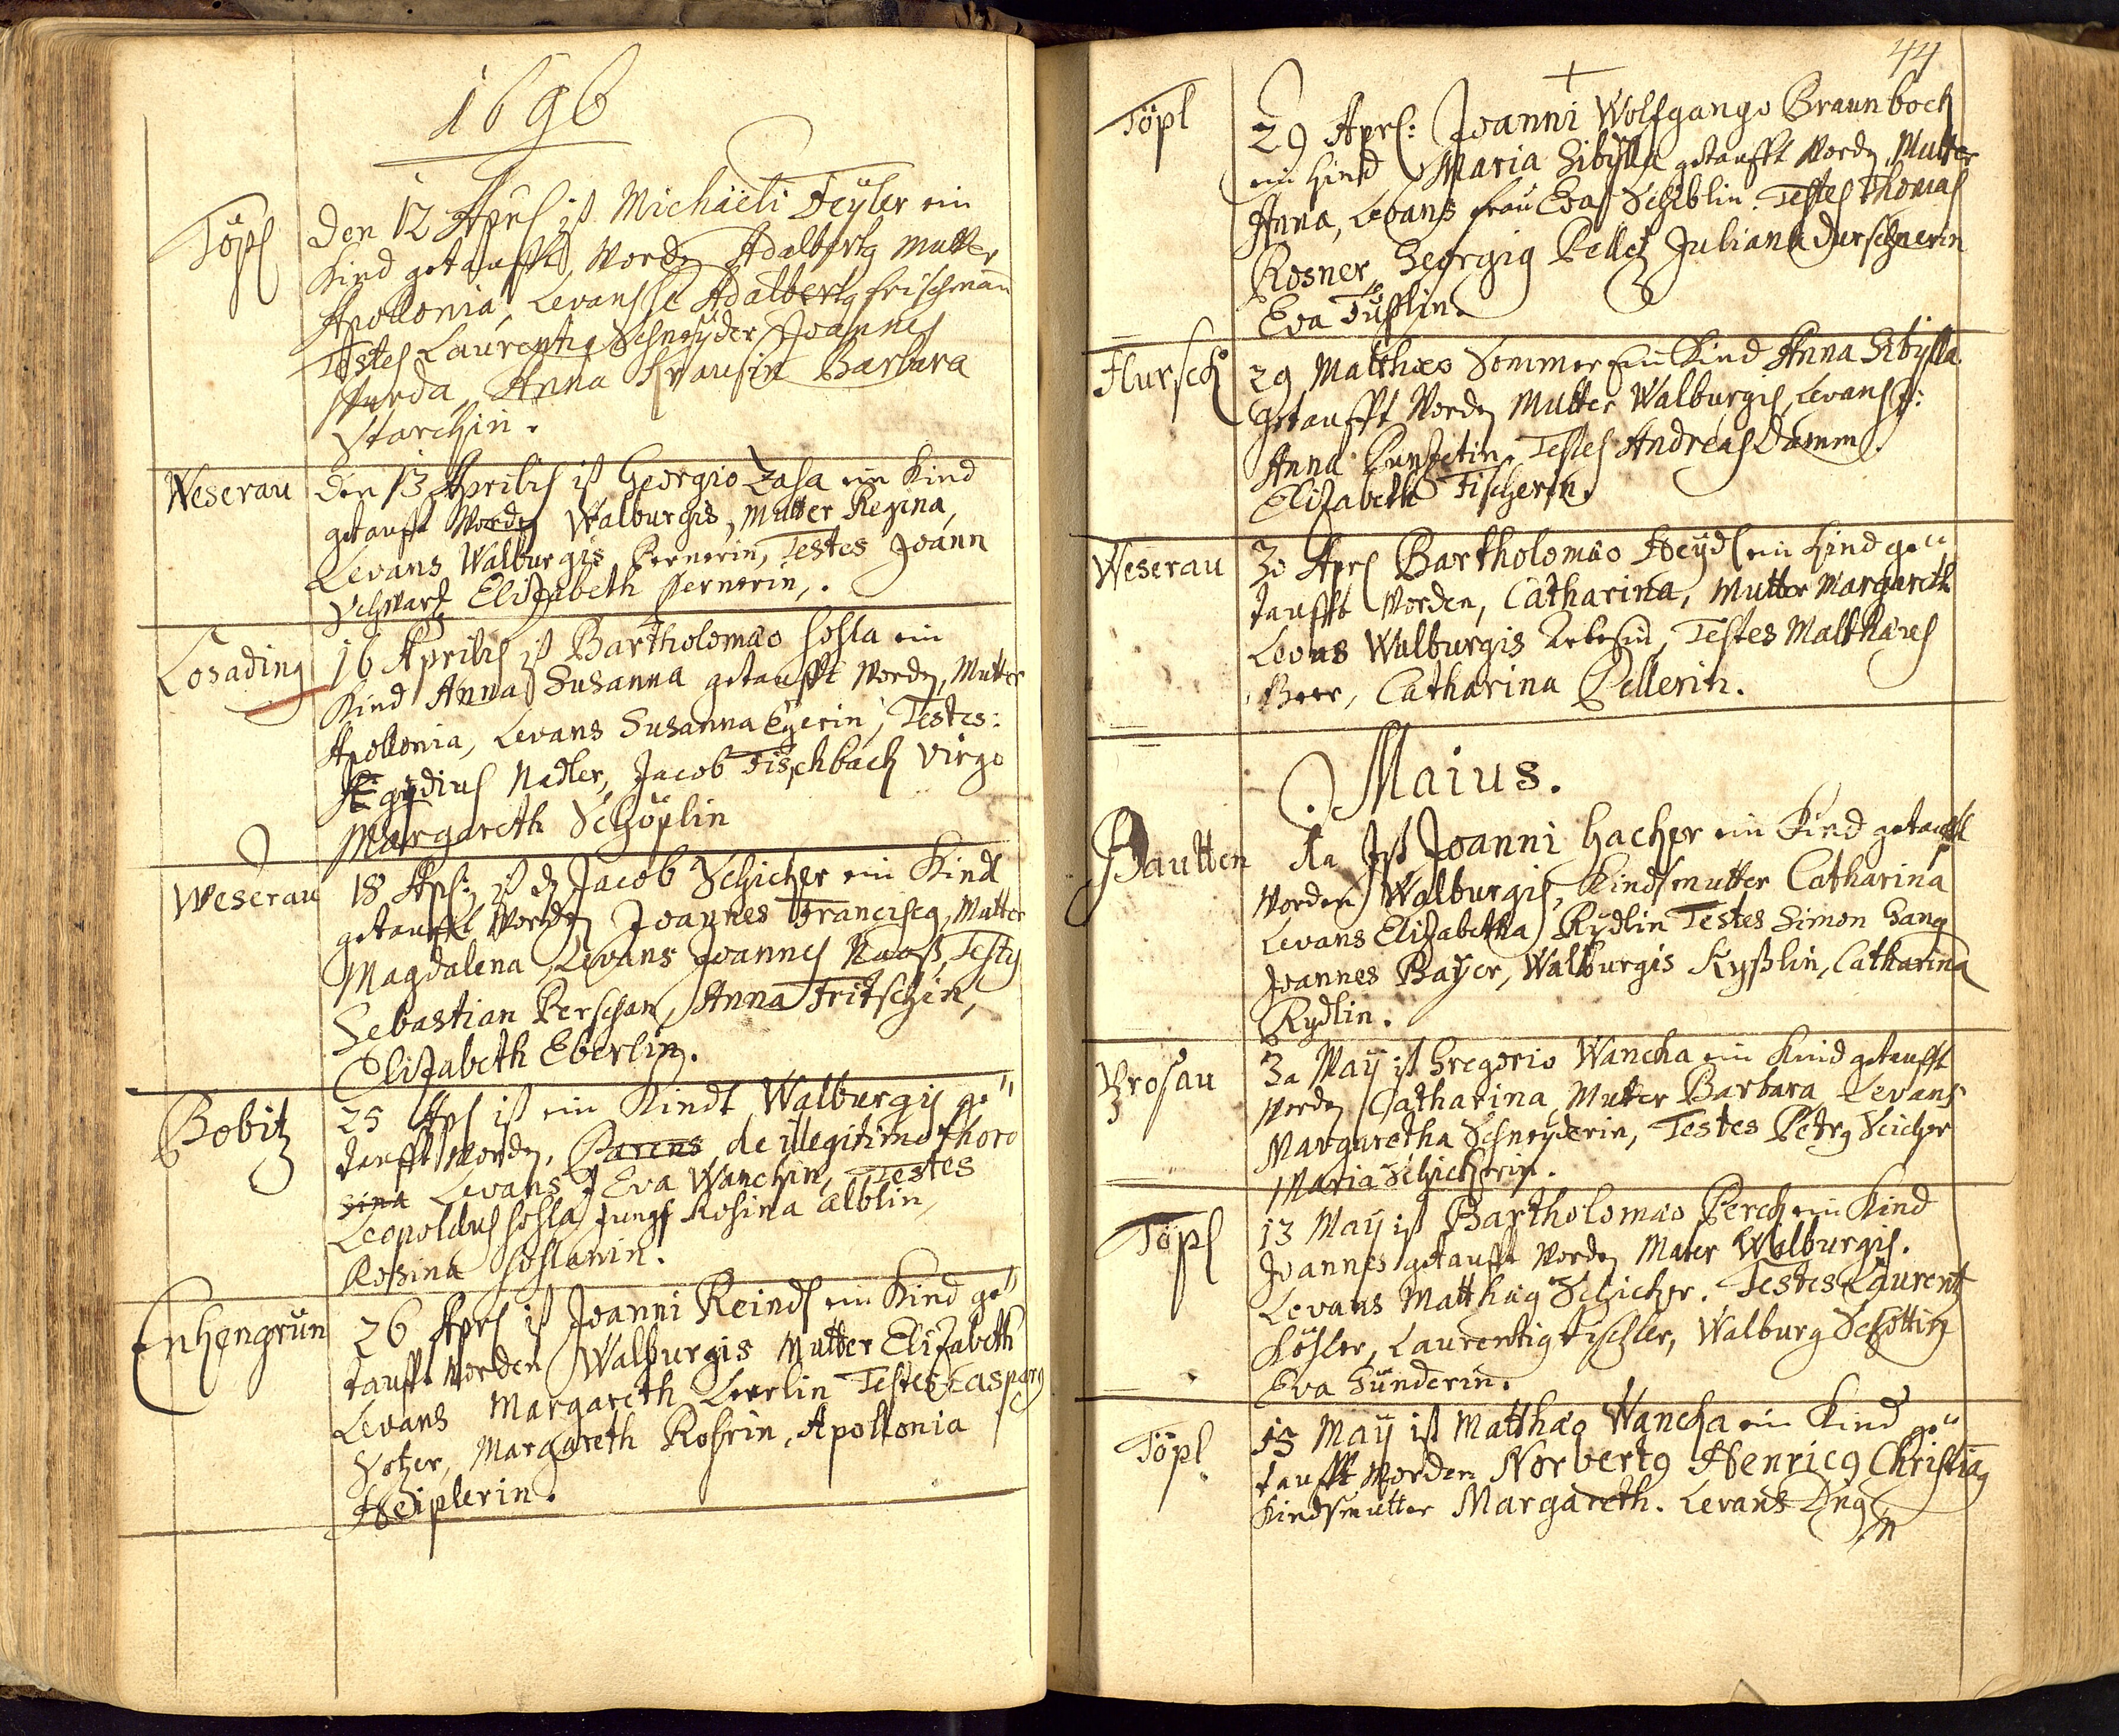 1696
Töpl
Den 12 Aprl ist Michäeli Feyler ein
Kind getaufft worden Adalbertg Mutter
Apollonia, Levans H Adalbertg Frischman
Testes Laurentig Schneyder Joannes
Anna Krausin Barbara
Starckin.
Weserau
den 13 Aprilis ist Georgio Zasa ein Kind
getaufft worden Walburgis, Mutter Regina,
Levans Walburgis Pernerin, Testes Joann
Schwartz Elizabeth Pernerin,.
Losading
16 Aprilis ist Bartholomäo Hosla ein
Kind Anna Susanna getaufft worden, Mutter
Apollonia, Levans Susanna Egerin, Testes:
Ægydius Nadler, Jacob Fischbach Virgo
Margareth Schöplin
Weserau
18 Apl: ist d Jacob Schicker ein Kindt
getaufft worden Joannes Franciscg, Mutter
Magdalena Levans Joannes Naaß, Testes
Sebastian Perschan, Anna Fritschin,
Elizabeth Eberlin.
Bobitz
25 Apl ist ein Kindt Walburgis ge"
taufft worden. Parens de illegitimo thoro
Levans J Eva Wanckin, Testes
Leopoldus Hosla, Jungf Rosina Alblin,
Rosina Hoslanin.
Enkengrün
26 Aprl ist Joanni Reindl ein Kind ge"
taufft worden Walburgis Mutter Elizabeth
Levans Margareth Leerlin Testes Casparg
Hotzer, Margareth Rosrin, Apollonia
Heiplerin.
44
Töpl
29 Aprl: Joanni Wolfgango Braunbock
ein Kind Maria Sibylla getaufft worden Mutter
Anna, Levans frau Eva Schiblin. Testes Thomas
Rosner, Georgig Peller Juliana Durschnerin
Eva Füsslin.
Hursch
29 Matthæo Sommer ein Kind Anna Sibylla
getaufft worden Mutter Walburgis, Levans J:
Anna Punzetin. Testes Andreas Damm.
Elizabeth Fischerin.
Weserau
30 Aprl Bartholomäo Heydl ein Kind ge"
taufft worden, Catharina, Mutter Margareth
Levans Walburgis Testes Matthäus
Beer, Catharina Pellerin.
Maius.
Pautten
Ist Joanni Hacker ein Kind getaufft
worden Walburgis, Kindsmutter Catharina
Levans Elizabetha Rydlin Testes Simon Gang
Joannes Bayer, Walburgis Kyßlin, Catharina
Rydlin.
Prosau
3a May ist Gregorio Wancka ein Kind getaufft
worden Catharina, Mutter Barbara Levans
Margaretha Schneyderin, Testes Petrg Scicker
Maria Schickerin.
Töpl
13 May ist Bartholomäo Perch ein Kind
Joannes getaufft worden Mater Walburgis.
Levans Matthäg Schicker. Testes Laurentg
Köhler, Laurentig Fischler, Walburg Schottin
Eva Günderin.
Töpl
15 May ist Matthäo Wancka ein Kind ge"
taufft worden Norbertg Henricg Christiag
Kindsmutter Margareth. Levans Dng